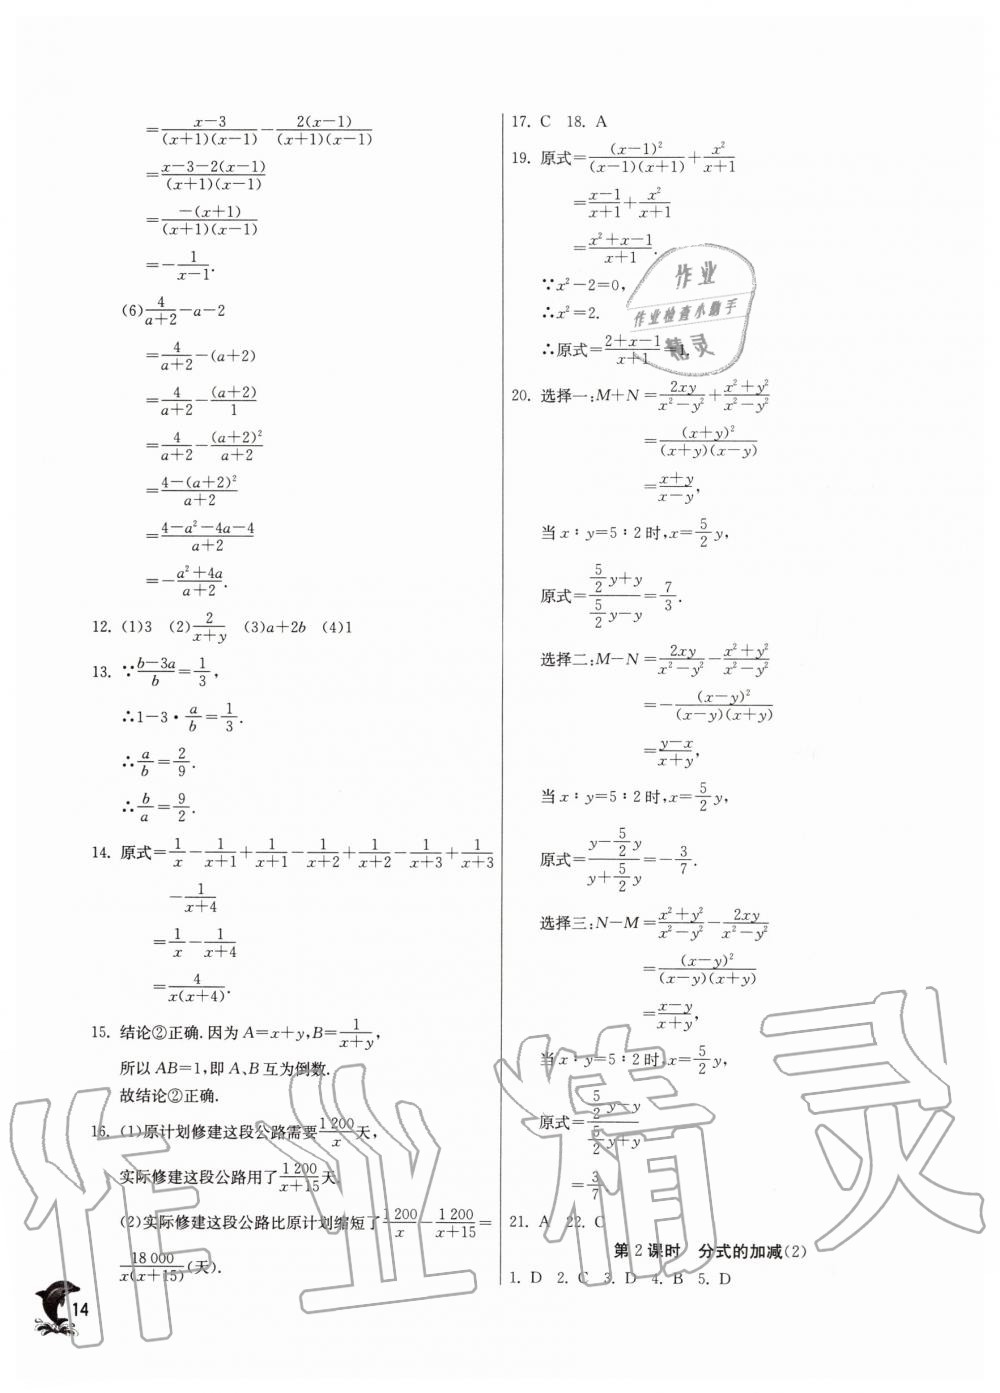 =\frac{x-3}{(x+1)(x-1)}-\frac{2(x-1)}{(x+1)(x-1)}
=\frac{x-3-2(x-1)}{(x+1)(x-1)}
=\frac{-(x+1)}{(x+1)(x-1)}
=-\frac{1}{x-1}.
(6)\frac{4}{a+2}-a-2
=\frac{4}{a+2}-(a+2)
=\frac{4}{a+2}-\frac{(a+2)}{1}
=\frac{4}{a+2}-\frac{(a+2)^2}{a+2}
=\frac{4-(a+2)^2}{a+2}
=\frac{4-a^2-4a-4}{a+2}
=-\frac{a^2+4a}{a+2}.
12. (1)3 (2)\frac{2}{x+y} (3)a+2b (4)1
13. ∵\frac{b-3a}{b}=\frac{1}{3},
∴1-3·\frac{a}{b}=\frac{1}{3}.
∴\frac{a}{b}=\frac{2}{9}.
∴\frac{b}{a}=\frac{9}{2}.
14. 原式=\frac{1}{x}-\frac{1}{x+1}+\frac{1}{x+1}-\frac{1}{x+2}+\frac{1}{x+2}-\frac{1}{x+3}+\frac{1}{x+3}
-\frac{1}{x+4}
=\frac{1}{x}-\frac{1}{x+4}
=\frac{4}{x(x+4)}.
15. 结论②正确.因为A=x+y,B=\frac{1}{x+y},
所以AB=1,即A、B互为倒数.
故结论②正确.
16. (1)原计划修建这段公路需要\frac{1 200}{x}天,
实际修建这段公路用了\frac{1 200}{x+15}天.
(2)实际修建这段公路比原计划缩短了\frac{1 200}{x}-\frac{1 200}{x+15}=
\frac{18 000}{x(x+15)}(天).
14
17. C 18. A
19. 原式=\frac{(x-1)^2}{(x-1)(x+1)}+\frac{x^2}{x+1}
=\frac{x-1}{x+1}+\frac{x^2}{x+1}
=\frac{x^2+x-1}{x+1}.
∵x^2-2=0,
∴x^2=2.
∴原式=\frac{2+x-1}{x+1}=1.
作业
作业检查小助手
精灵
20. 选择一:M+N=\frac{2xy}{x^2-y^2}+\frac{x^2+y^2}{x^2-y^2}
=\frac{(x+y)^2}{(x+y)(x-y)}
=\frac{x+y}{x-y},
当x∶y=5∶2时,x=\frac{5}{2}y,
原式=\frac{\frac{5}{2}y+y}{\frac{5}{2}y-y}=\frac{7}{3}.
选择二:M-N=\frac{2xy}{x^2-y^2}-\frac{x^2+y^2}{x^2-y^2}
=-\frac{(x-y)^2}{(x-y)(x+y)}
=\frac{y-x}{x+y},
当x∶y=5∶2时,x=\frac{5}{2}y,
原式=\frac{y-\frac{5}{2}y}{y+\frac{5}{2}y}=-\frac{3}{7}.
选择三:N-M=\frac{x^2+y^2}{x^2-y^2}-\frac{2xy}{x^2-y^2}
=\frac{(x-y)^2}{(x-y)(x+y)}
=\frac{x-y}{x+y},
当x∶y=5∶2时,x=\frac{5}{2}y,
原式=\frac{\frac{5}{2}y-y}{\frac{5}{2}y+y}
=\frac{3}{7}.
21. A 22. C
第2课时 分式的加减(2)
1. D 2. C 3. D 4. B 5. D
作业精灵